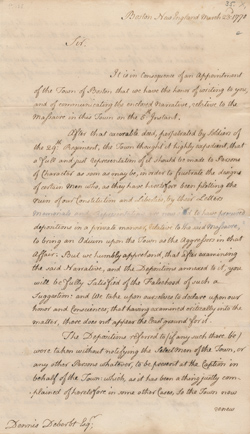 Boston New England March 23d 1770
Sir.
It is in consequence of an Appointment
of the Town of Boston that we have the honor of writing to you,
and of communicating the enclosed Narrative, relative to the
Massacre in this Town on the 5th Instant.
After that execrable deed, perpetrated by Soldiers
of the 29th Regiment, the Town thought it highly expedient, that
a full and just representation of it should be made to Persons
of Character as soon as may be, in order to frustrate the designs
of certain Men who, as they have heretofore been plotting the
ruin of our Constitution and Liberties by their Letters
Memorials and to have procured
depositions in a private manner, relative to the said Massacre,
to bring an Odium upon the Town as the Aggressors in that
Affair: But we humbly apprehend, that after examining
the said Narrative, and the Depositions annexed to it, you
will be fully Satisfied of the Falsehood of such a
Suggestion: and We take upon ourselves to declare upon our
honor and Consciences, that having examined critically into the
matter, there does not appear the least ground for it.
The Depositions referred to (if any such there be)
were taken without notifying the Selectmen of the Town, or
any other Persons whatever, to be present at the Caption in
behalf of the Town: which, as it has been a thing justly com-
plained of heretofore in some other Cases, so the Town now
renew
Dennis Deberdt Esq.